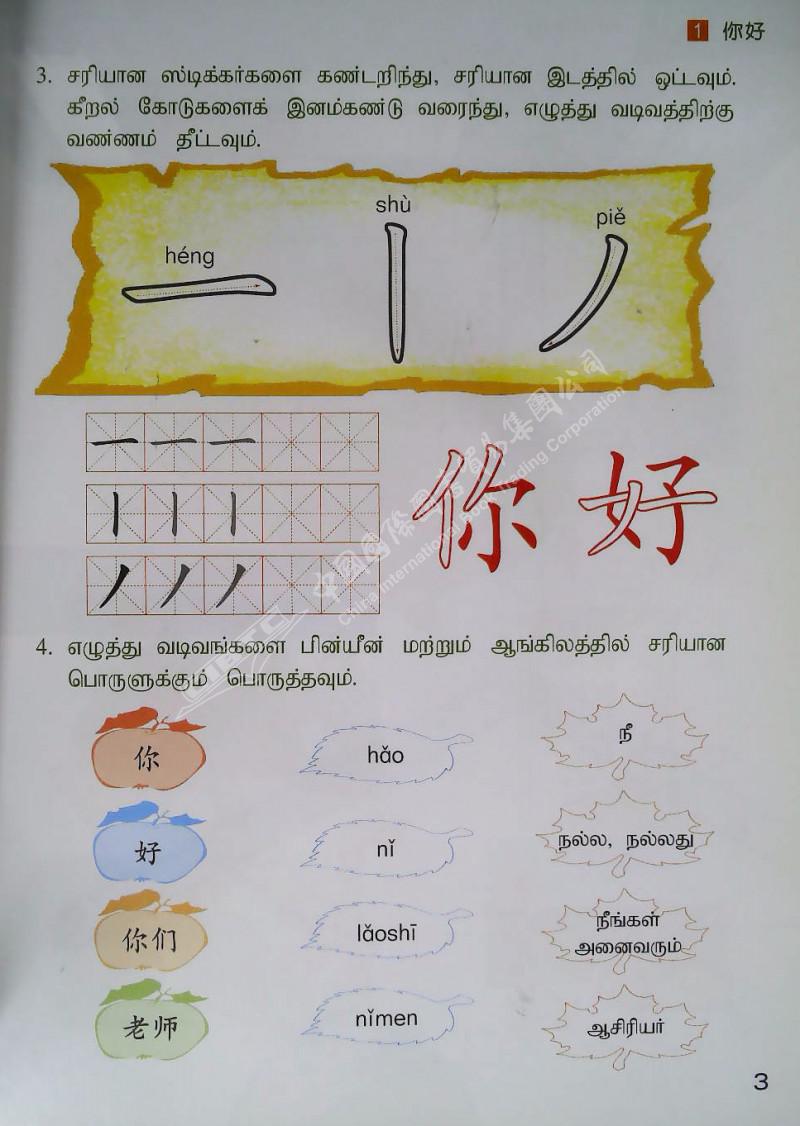 1 你好
3. சரியான ஸ்டிக்கர்களை கண்டறிந்து, சரியான இடத்தில் ஒட்டவும்.
கீறல் கோடுகளைக் இனம்கண்டு வரைந்து, எழுத்து வடிவத்திற்கு
வண்ணம் தீட்டவும்.
héng shù piě
一 一 一
丨 丨 丨
丿 丿 丿
你 好
中國國際圖書貿易集團公司
China International Book Trading Corporation
CIBTC
4. எழுத்து வடிவங்களை பின்யீன் மற்றும் ஆங்கிலத்தில் சரியான
பொருளுக்கும் பொருத்தவும்.
你 hǎo நீ
好 nǐ நல்ல, நல்லது
你们 lǎoshī நீங்கள்
அனைவரும்
老师 nǐmen ஆசிரியர்
3